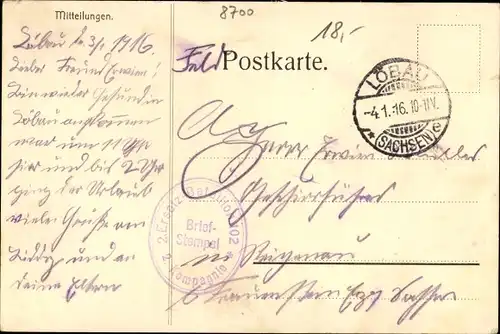 Mitteilungen.
8700
18,-
Löbau d. 3/1. 1916.
Lieber Freund Erwin!
Bin wieder gesund in
Löbau angekommen
war um 11 Uhr
hier und bis 2 Uhr
ging der Urlaub
viele Grüße an
und an
deine Eltern
Feld Postkarte.
LÖBAU
-4.1.16. 10-11V.
* (SACHSEN) e
An
Herrn Erwin
Geschirrführer
in
b Frauenstein Erzg Sachsen
2. Ersatz Bataillon 102
Brief-
Stempel
Kompagnie